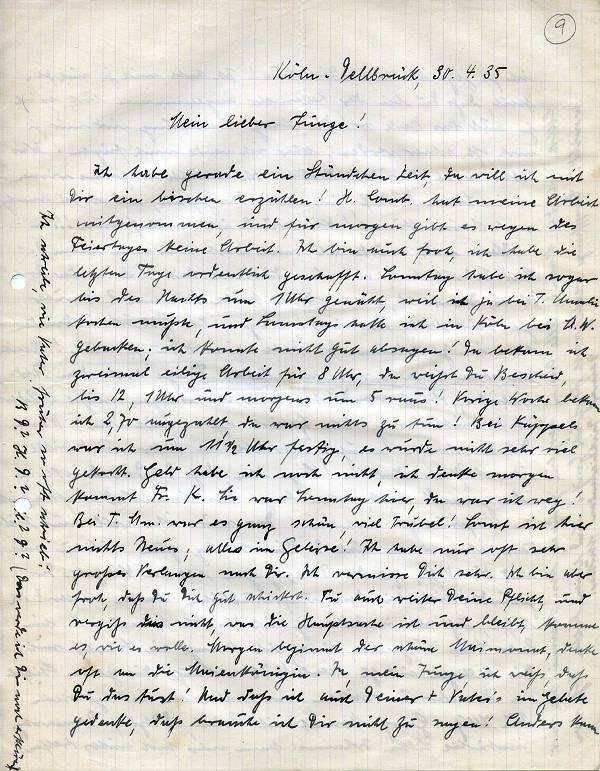 9
Köln-Dellbrück, 30. 4. 35
Mein lieber Junge!
Ich habe gerade ein Stündchen Zeit, da will ich mit
Dir ein bischen erzählen! H. Comb. hat meine Arbeit
mitgenommen, und für morgen gibt es wegen des
Feiertages keine Arbeit. Ich bin auch froh, ich habe die
letzten Tage ordentlich geschafft. Samstag habe ich sogar
bis des Nachts um 1 Uhr genäht, weil ich ja bei T.
kochen mußte, und Samstags hatte ich in Köln bei
gebacken; ich konnte nicht gut absagen! Da bekam ich
zweimal eilige Arbeit für 8 Uhr, da weißt Du Bescheid,
bis 12, 1 Uhr und morgens um 5 raus! Vorige Woche bekam
ich 2,70 ausgezahlt da war nichts zu tun! Bei Küppels
war ich um 11 1/2 Uhr fertig, es wurde nicht sehr viel
gekocht. Geld habe ich noch nicht, ich denke morgen
kommt Fr. K. Sie war Samstag hier, da war ich weg!
Bei T. Am. war es ganz schön, viel Trubel! Sonst ist hier
nichts Neues, alles im Geleise! Ich habe nur oft sehr
großes Verlangen nach Dir. Ich vermisse Dich sehr. Ich bin aber
froh, daß Du Dich gut schickst. Tu auch weiter Deine Pflicht, und
vergiß nicht, was die Hauptsache ist und bleibt, komme
es, wie es wolle. Morgen beginnt der schöne Maimonat, denke
oft an die Maienkönigin. Ja, mein Junge ich weiß, daß
Du das tust! Und daß ich auch Deiner + Vater's im Gebete
gedenke, das brauche ich Dir nicht zu sagen! Anders kann
Ich schreibe, wie Vater früher so oft schrieb:
(Das werde ich Dir noch erklären)